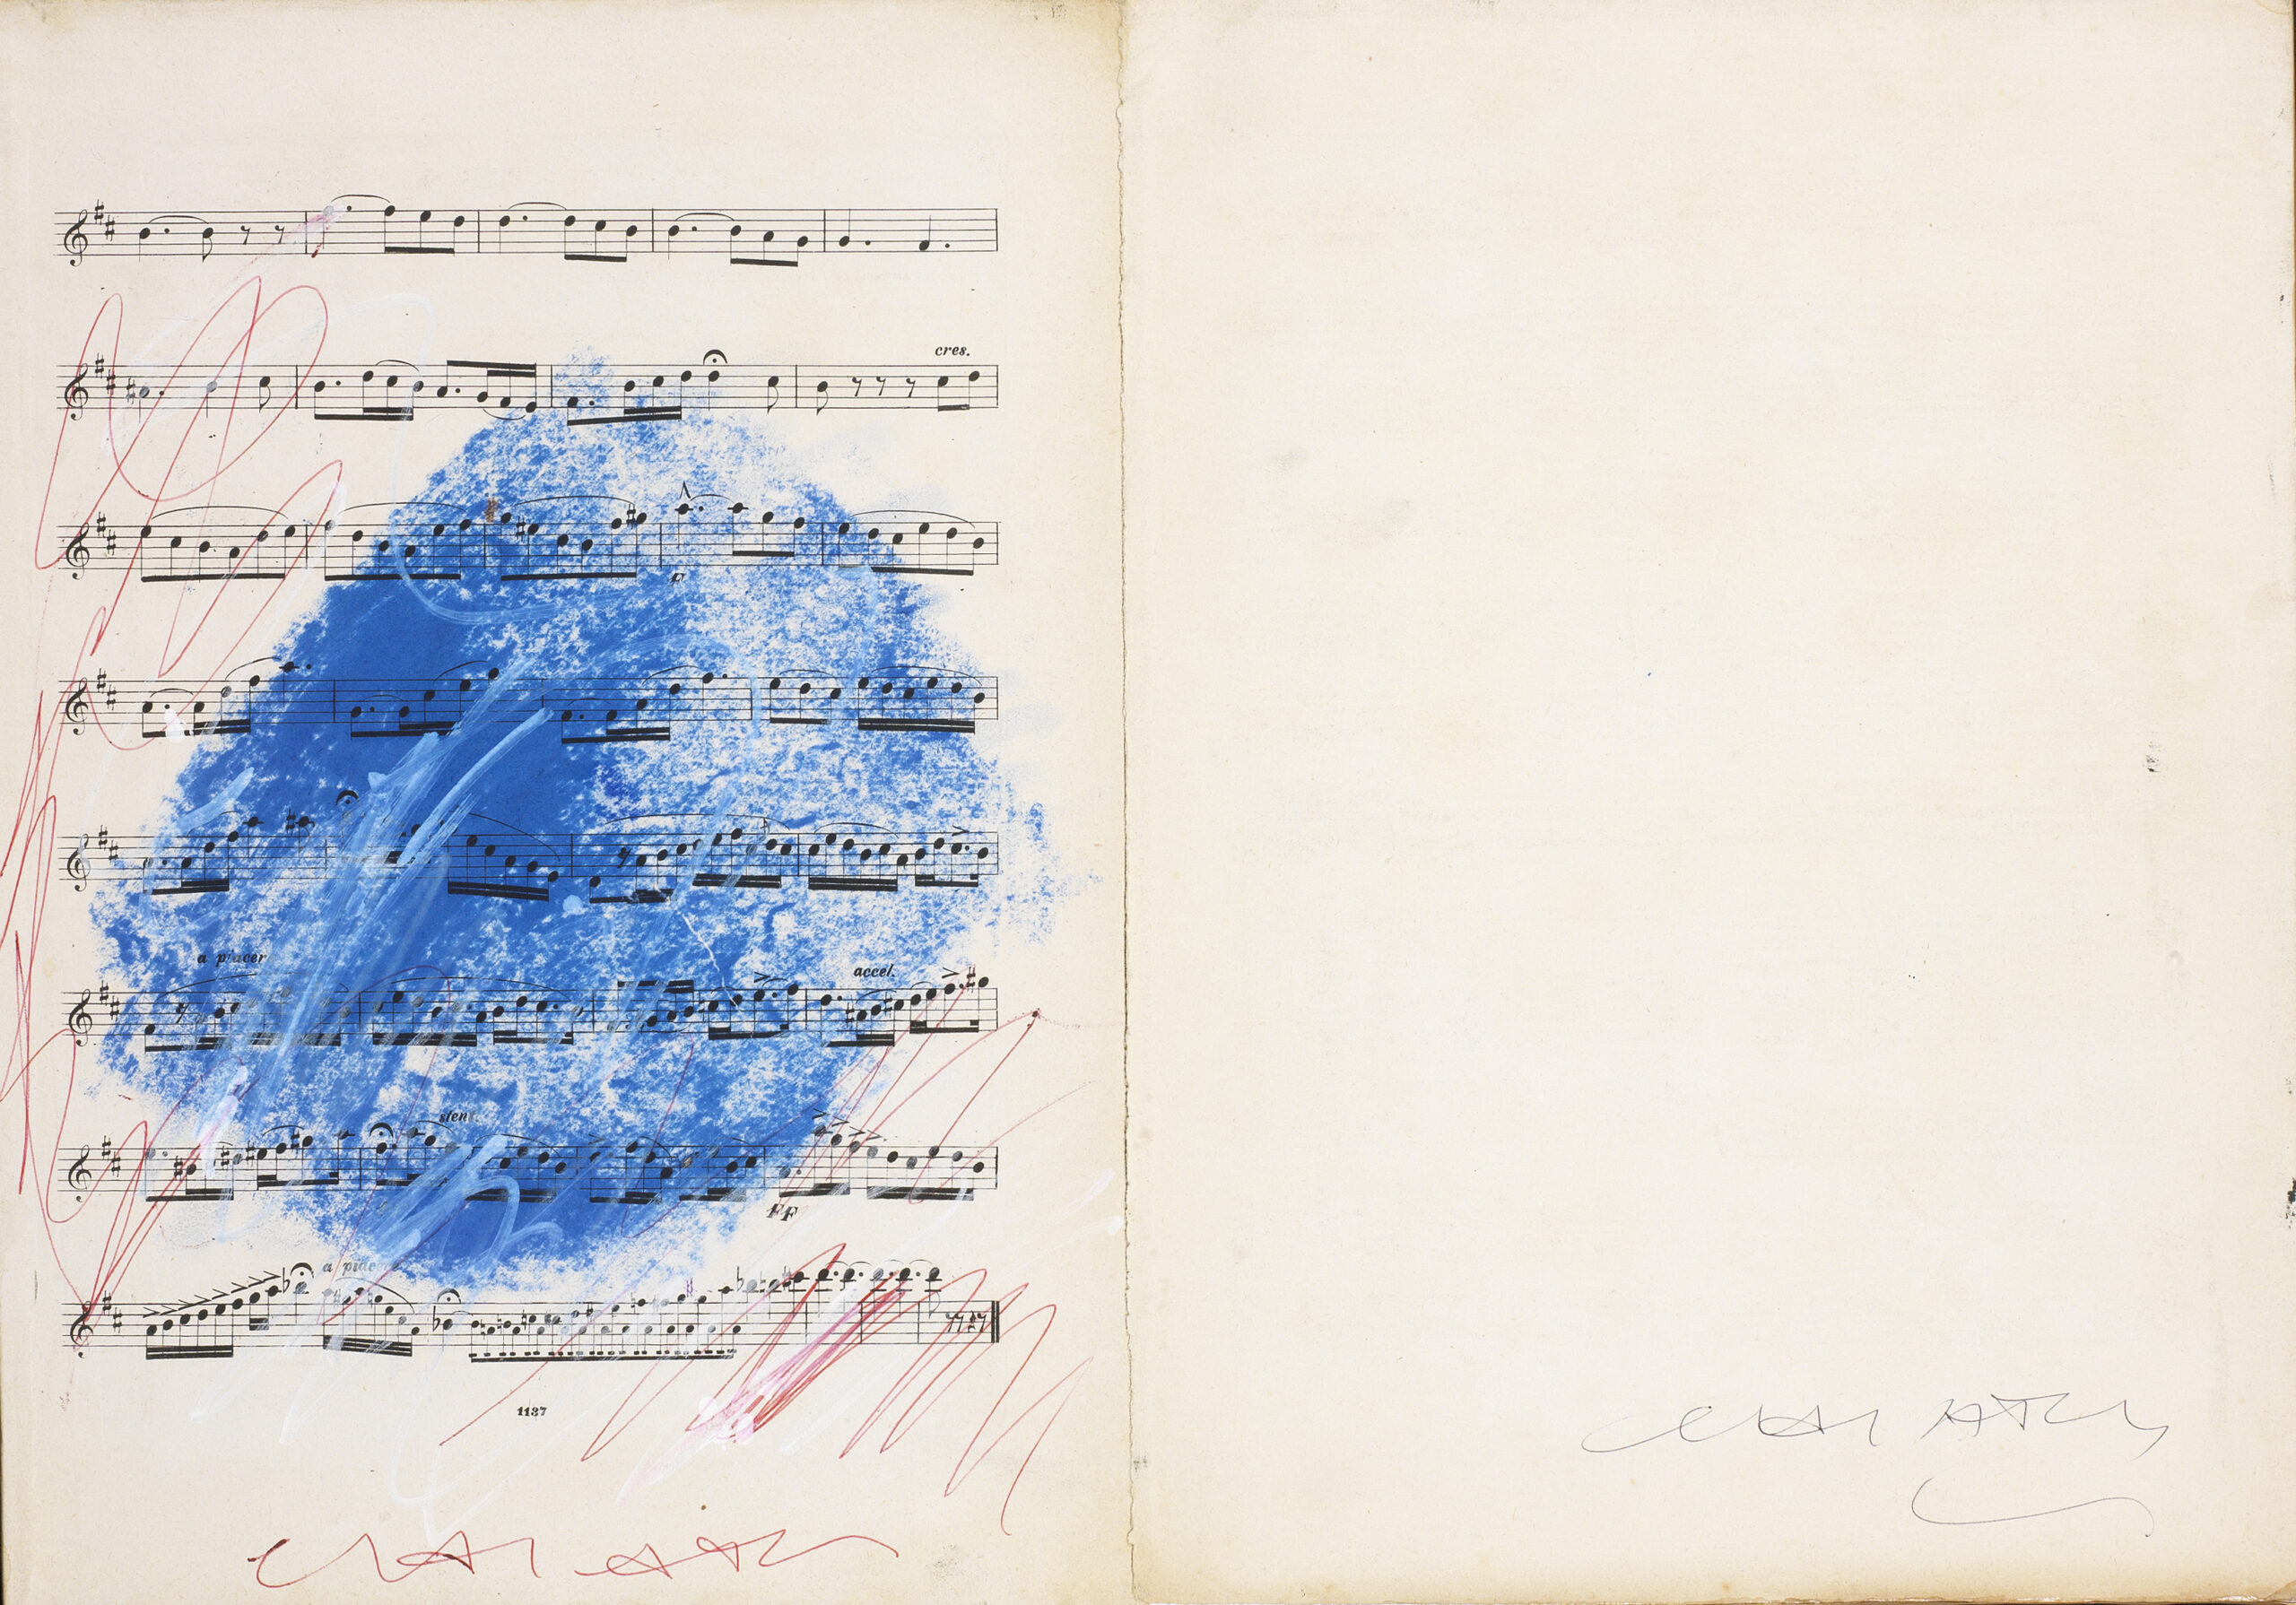 cres.
a piacer
accel.
stent.
FF
a piacer
1137